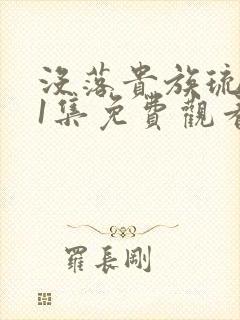 没落貴族琉
1集免費觀看
羅長剛